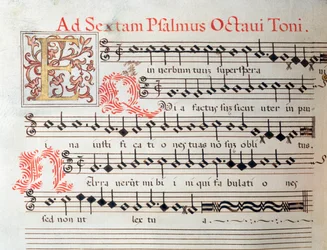 Ad Sextam Psalmus Octaui Toni.
E
in uerbum tuū supersperaui
Q
Via factus sū sicut uter in pru
ina iustificationes tuas nō sū oblitus.
N
Arrauerūt mihi iniqui fabulationes
sed non ut lex tua